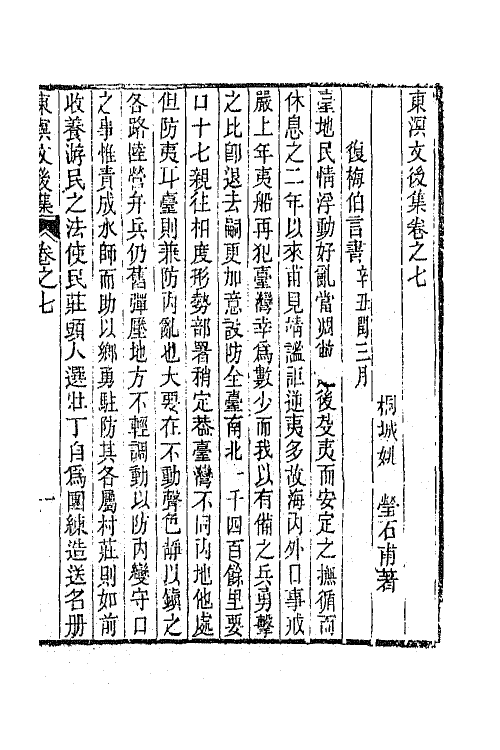 東溟文後集卷之七
桐城姚　瑩石甫著
復梅伯言書辛丑閏三月
臺地民情浮動好亂當凋
後芟夷而安定之撫循而
休息之二年以來甫見靖謐詎逆夷多故海內外日事戒
嚴上年夷船再犯臺灣幸為數少而我以有備之兵勇擊
之比即退去嗣更加意設防全臺南北一千四百餘里要
口十七親往相度形勢部署稍定葢臺灣不同內地他處
但防夷耳臺則兼防內亂也大要在不動聲色靜以鎮之
各路陸營弁兵仍舊彈壓地方不輕調動以防內變守口
之事惟責成水師而助以鄉勇駐防其各屬村莊則如前
收養游民之法使民莊頭人選壯丁自為團練造送名册
東溟文後集　卷之七　一